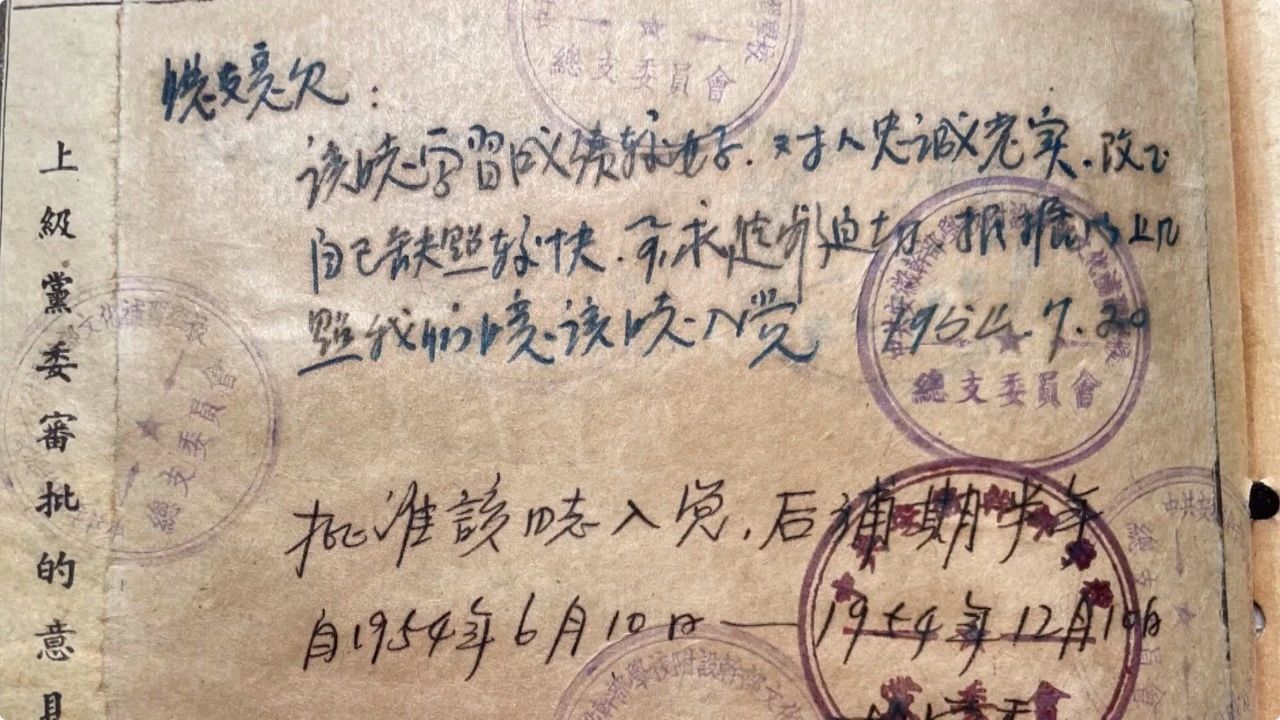 上級黨委審批的意見
总支意见:
该同志学習成績较好.对人忠诚老实.改正
自己缺点较快.要求进步迫切.根据以上几
点我们同意该同志入党 1954.7.20
總支委員會
總支委員會
總支委員會
批准該同志入党,后補期半年
自1954年6月10日—1954年12月10日
黨委會